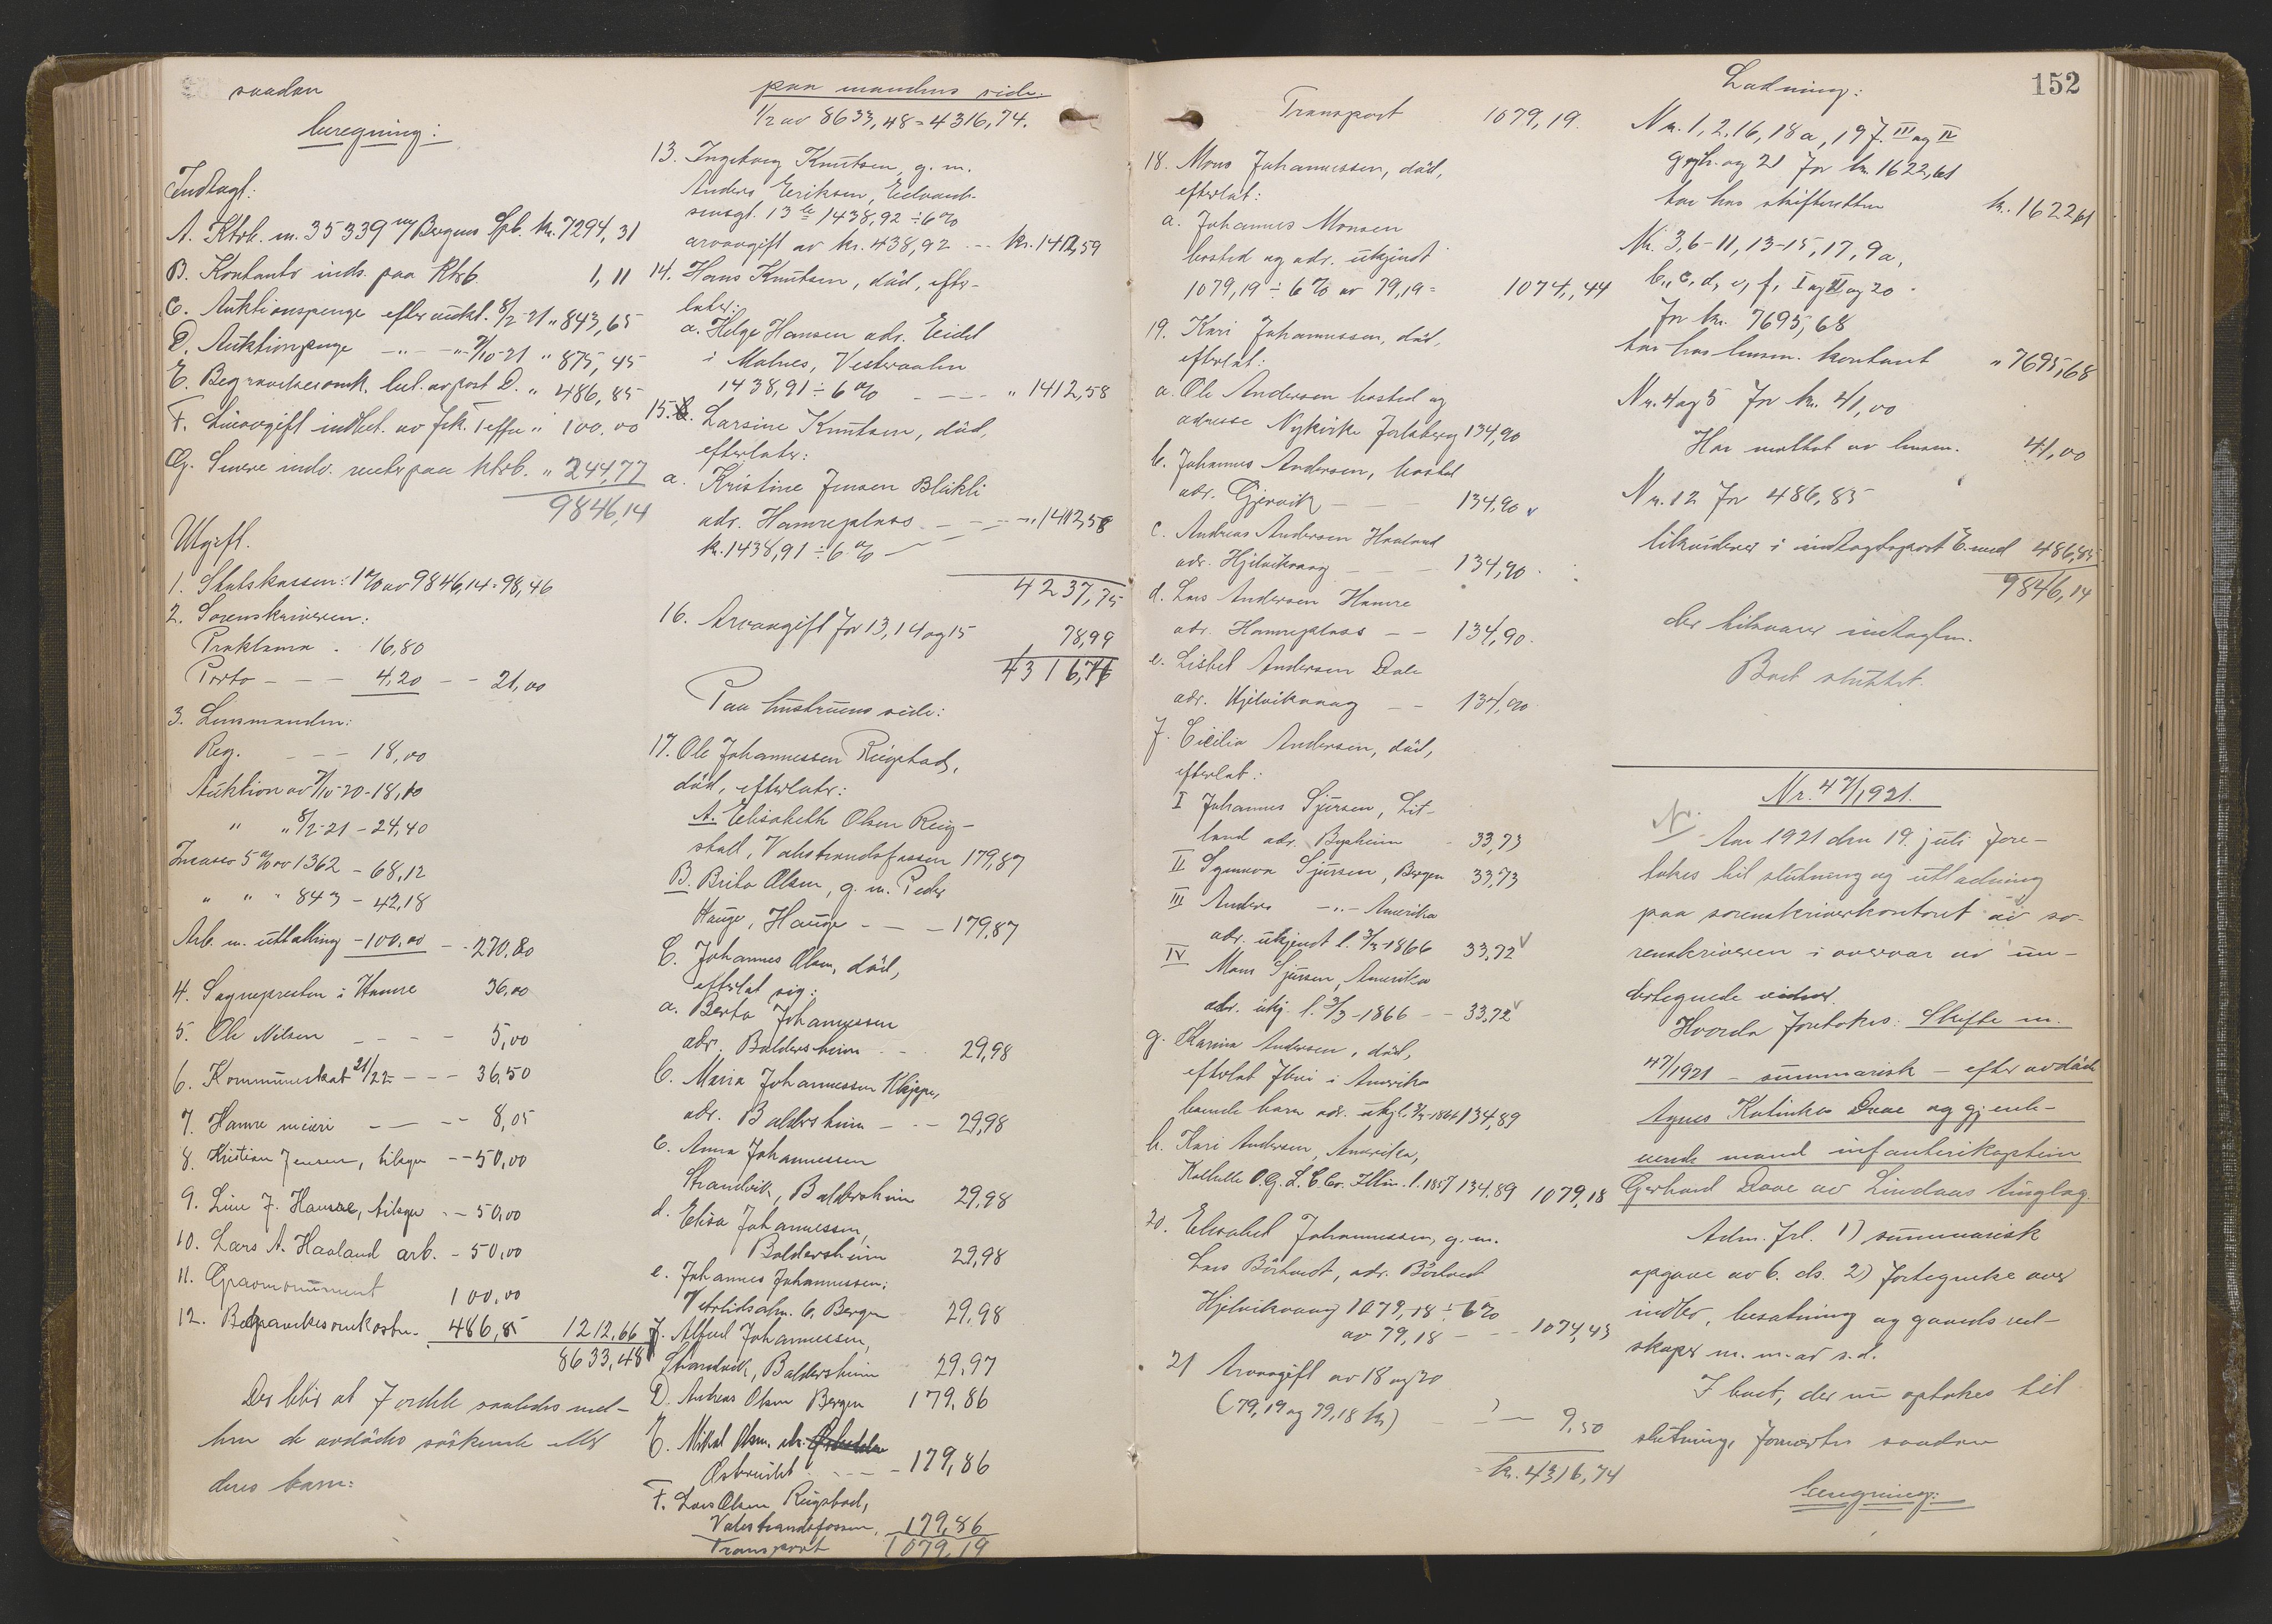 saadan
beregning:
Indtægt:
A. Ktrb. nr. 35339 Bergens Spb. kr. 7294,31
B. Kontanter inds. paa Ktrb. 1,11
C. Auktionspenge efter auckt. 8/2-21 " 843,65
D. Auktionpenge -"- -"- 7/10-21 " 875,45
E. Begravelsesomk. bet. av post D. " 486,85
F. indbet. av " 100,00
G. Senere indv. renter paa ktrb. " 244,77
9846,14
Utgift.
1. Statskassen: 1% av 9846,14 - 98,46
2. Sorenskriveren:
Proklama . 16,80
Porto - - - 4,20 - - 21,00
3. Lensmanden:
Reg. - - 18,00
Auktion av 7/10-20 - 18,10
" " 8/2-21 - 24,40
Incasso 5% av 1362 - 68,12
" " " 843 - 42,18
Arb. m. uttalling - 100,00 - - 270,80
4. Sognepresten i Hamre 36,00
5. Ole Nilsen - - - - 5,00
6. Kommuneskat 21/22 - - - 36,50
7. Hamre meieri - - - - 8,05
8. Kristian Jensen, tilsyn - - 50,00
9. Line J. Hamre, tilsyn - - 50,00
10. Lars A. Haaland arb. - 50,00
11. Gravmonument 100,00
12. Begravelsesomkostn. 486,85 1212,66
8633,48
Der blir at fordele saaledes mel-
lem de avdødes søskende eller
deres barn:
paa mandens side.
1/2 av 8633,48 = 4316,74.
13. Ingeborg Knutsen, g. m.
Anders Eriksen,
13 1438,92 ÷ 6%
arveavgift av kr. 438,92 - - - kr. 1412,59
14. Hans Knutsen, död, efter-
later:
a. Helge Hansen adr. Eidet
i Malnes, Vesteraalen
1438,91 ÷ 6% - - - - " 1412,58
15. Larsine Knutsen, död,
efterlater:
a. Kristine Jensen Bleikli
adr. Hamreplass - - - - " 1412,58
kr. 1438,91 ÷ 6%
4237,75
16. Arveavgift for 13, 14 og 15 78,99
4316,74
Paa hustruens side:
17. Ole Johannessen Røigstad,
död, efterlater:
A. Elisabeth Olsen Røig-
stad, Valestrandsfossen 179,87
B. Brita Olsen, g. m. Peder
Hauge, Hauge - - - 179,87
C. Johannes Olsen, död,
efterlat sig:
a. Berta Johannessen
adr. Baldersheim - - 29,98
b. Maria Johannessen Kleppe,
adr. Baldersheim - - - 29,98
c. Anna Johannessen
Strandvik, Baldersheim 29,98
d. Elisa Johannessen,
Baldersheim 29,98
e. Johannes Johannessen,
Vetrlidsalm. 6, Bergen 29,98
f. Alfred Johannessen,
Strandvik, Baldersheim 29,97
D. Andreas Olsen Bergen 179,86
E. Mikal Olsen, adr.
- - - - 179,86
F. Lars Olsen Røigstad,
Valestrandsfossen, 179,86
Transport 1079,19
152
Transport 1079,19
18. Mons Johannessen, död,
efterlat:
a. Johannes Monsen
bosted og adr. ukjendt
1079,19 ÷ 6% av 79,19 = 1074,44
19. Kari Johannessen, död,
efterlat:
a. Ole Andersen bosted og
adresse Nykirke Jarlsberg 134,90
b. Johannes Andersen, bosted
adr. Gjervik - - - 134,90
c. Andreas Andersen Haaland
adr. Hjelvikvaag - - - 134,90
d. Lars Andersen Hamre
adr. Hamreplass - - 134,90
e. Lisbet Andersen Dale
adr. Hjelvikvaag - - 134,90
f. Cicilia Andersen, död,
efterlat:
I Johannes Sjursen, Lit-
land adr. Bysheim - 33,73
II Synneva Sjursen, Bergen 33,73
III Anders -"- Amerika
adr. ukjendt l. 3/3-1866 33,72
IV Mons Sjursen, Amerika
adr. ukj. l. 3/3-1866 - - 33,72
g. Karina Andersen, död,
efterlat flere i Amerika
boende barn adr. ukj. l. 3/3-1866 134,89
h. Kari Andersen, Amerika,
O.G. L. C. Co. Illin. l. 1857 134,89 1079,18
20. Elisabet Johannessen, g. m.
Lars Börtveit, adr. Börtveit
Hjelvikvaag 1079,18 ÷ 6%
av 79,18 - - - 1074,43
21 Arveavgift av 18 og 20
(79,19 og 79,18 kr) - - - 9,50
kr. 4316,74
Ladning:
Nr. 1, 2, 16, 18a, 19 f. III og IV
g og h. og 21 for kr. 1622,61
tar hos skifteretten kr. 1622,61
Nr. 3, 6-11, 13-15, 17, 9a,
b, c, d, e, f, I og II og 20
for kr. 7695,68
tar hos lensm. kontant " 7695,68
Nr. 4 og 5 for kr. 41,00
Har mottat av lensm. 41,00
Nr. 12 for 486,85
likvideres i indtægtspost E. med 486,85
9846,14
der tilsvarer indtægten.
Boet sluttet.
Nr. 47/1921.
Aar 1921 den 19. juli fore-
tokes til slutning og utladning
paa sorenskriverkontoret av so-
renskriveren i overvær av un-
dertegnede vidner.
Hvorda foretokes: Skifte nr.
47/1921 - summarisk - efter avdöde
Agnes Katinka Daae og gjenle-
vende mand infanterikaptein
Gerhard Daae av Lindaas tinglag.
Adm. frl. 1) summarisk
opgave av 6. ds. 2) fortegnelse over
indbo, besætning og gaardsred-
skaper m. m. av s. d.
I boet, der nu optokes til
slutning, formertes saadan
beregning: